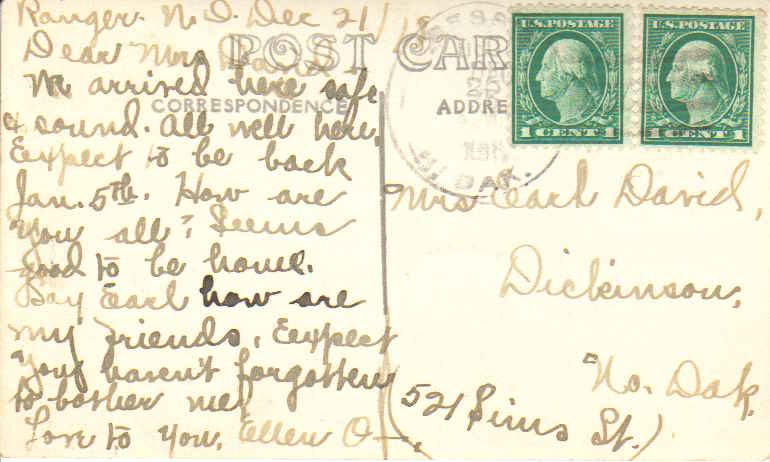 Ranger N.D. Dec 21/18
Dear Mrs David
We arrived here safe
& sound. All well here.
Expect to be back
Jan. 5th. How are
you all? Seems
good to be home.
Say Earl how are
my friends. Expect
you haven't forgotten
to bother me!
Love to you, Ellen O—.
POST CARD
CORRESPONDENCE
ADDRE
U.S. POSTAGE
1 CENT 1
U.S. POSTAGE
1 CENT 1
25
N. DAK.
Mrs Earl David,
Dickinson,
No. Dak.
(521 Sims
St.)